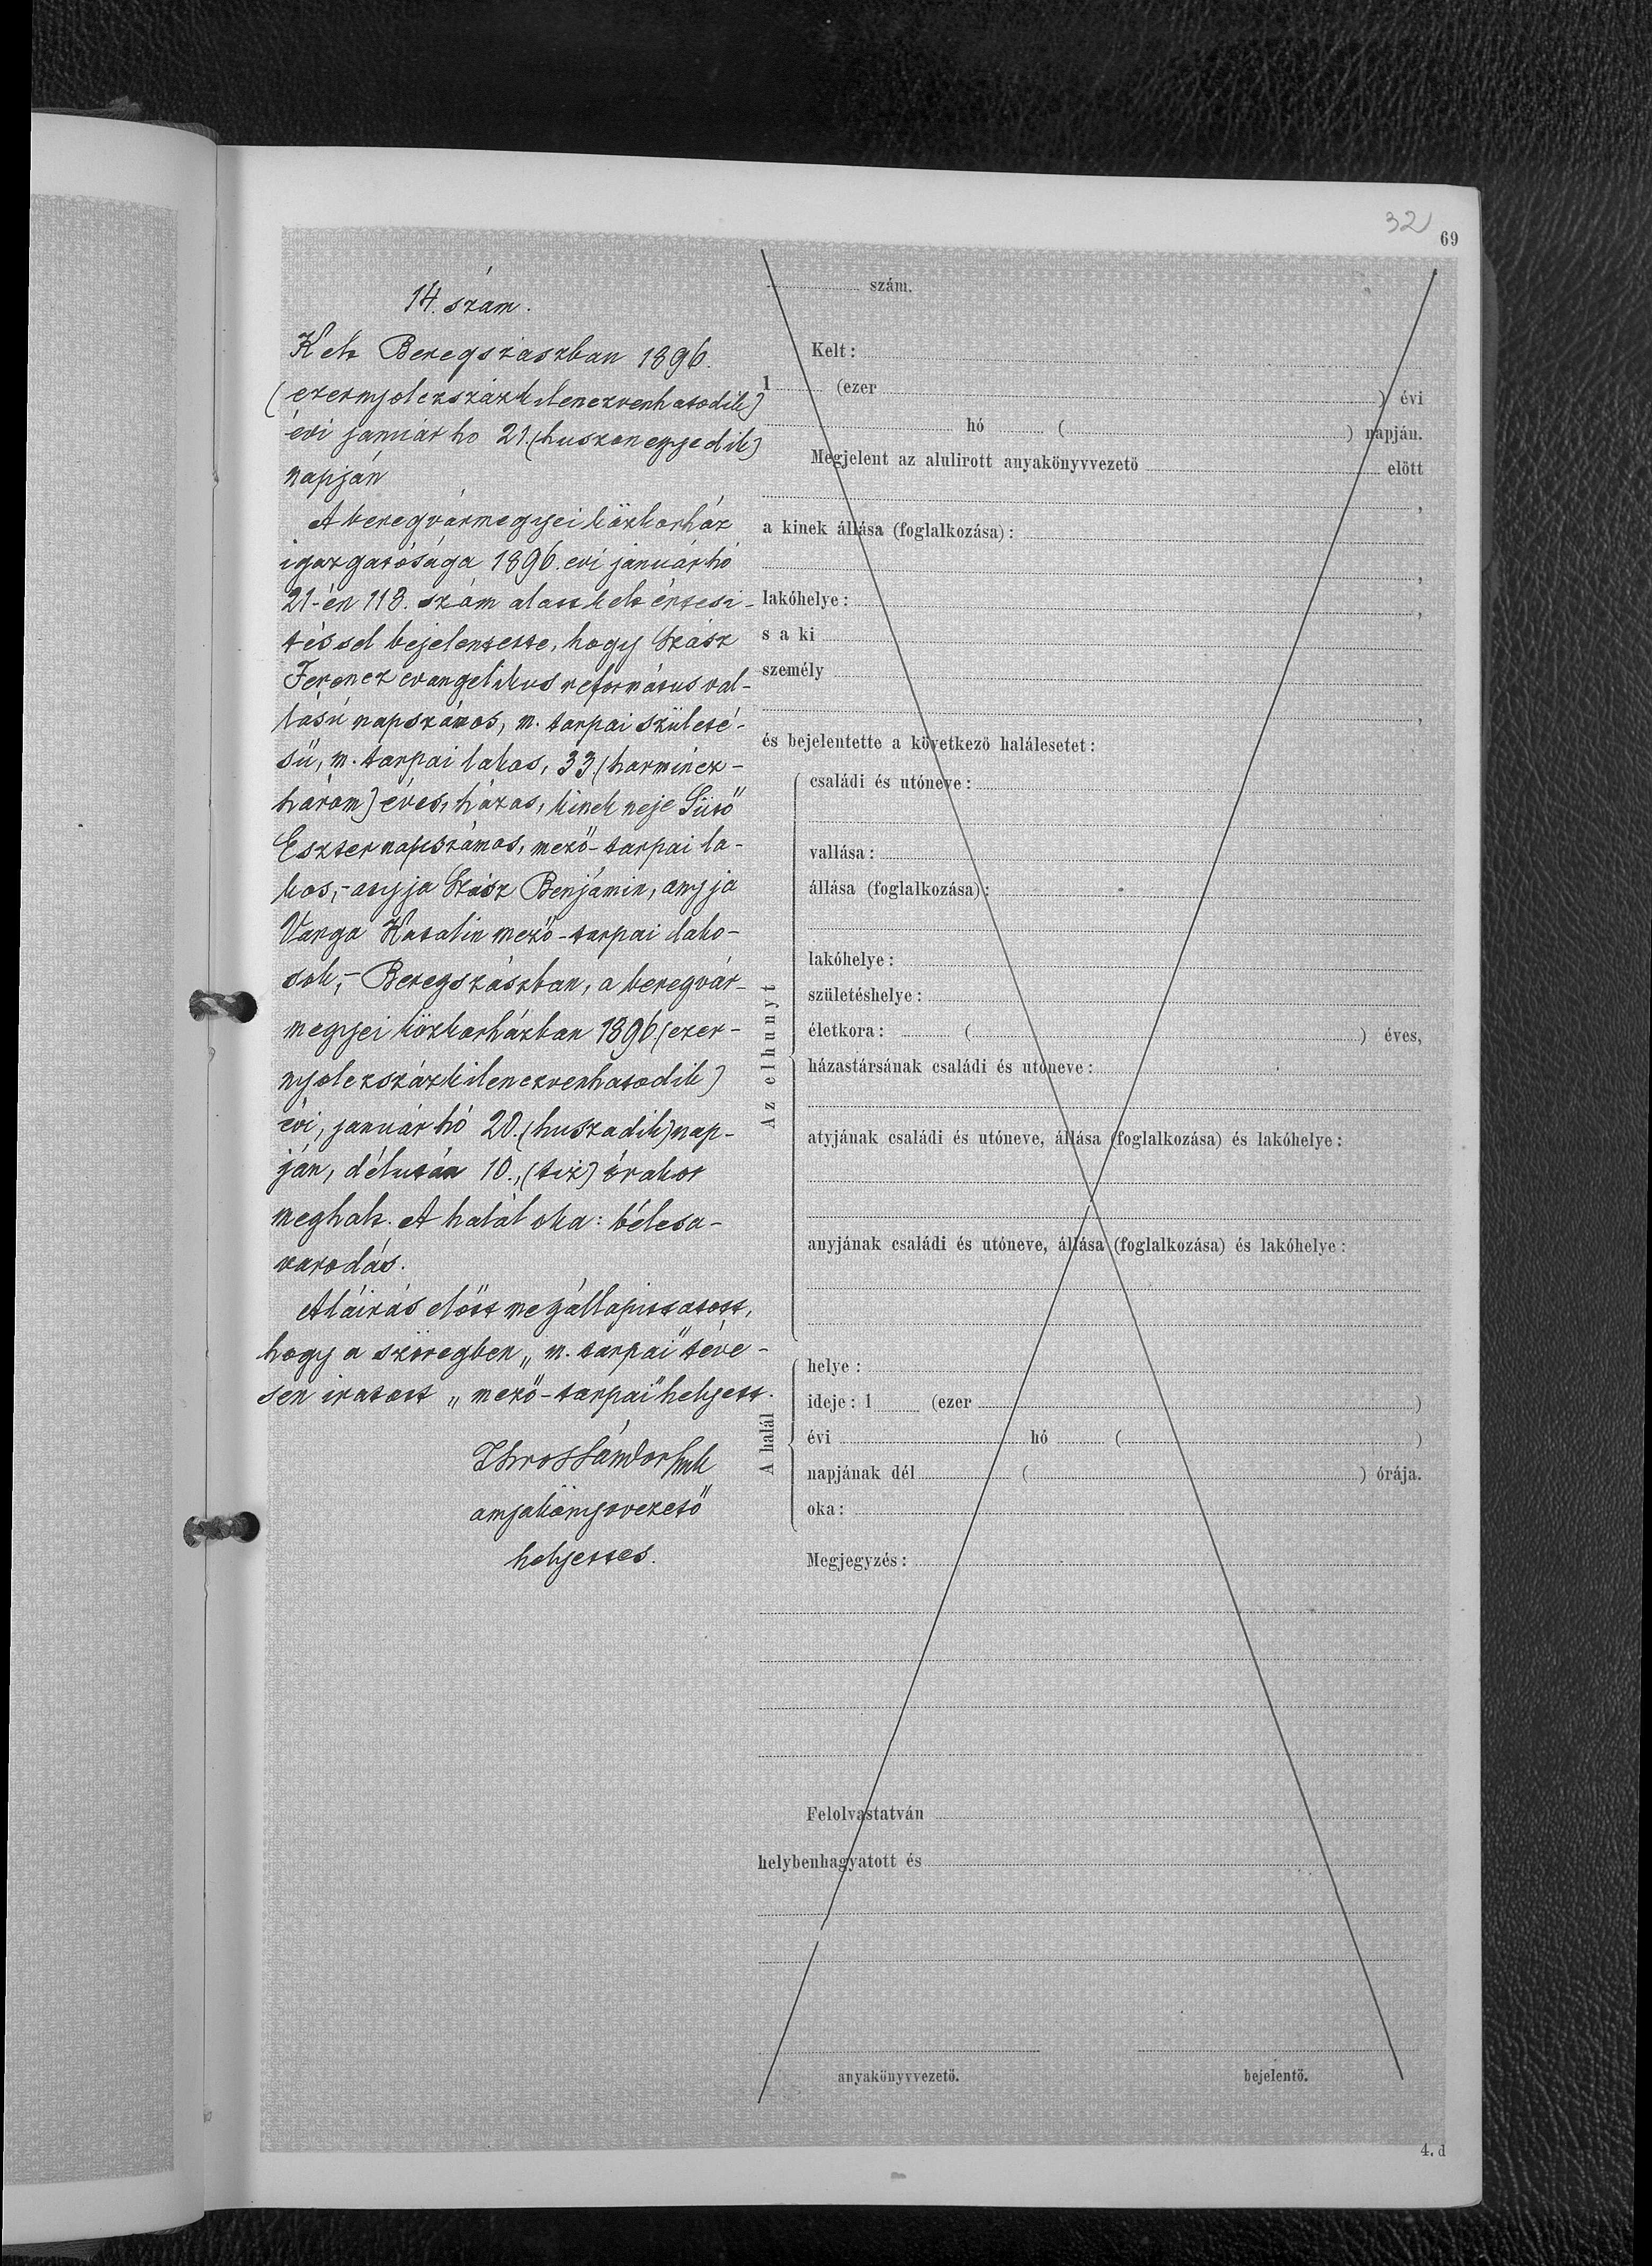 32
69
14. szám.
Kelt Beregszászban 1896.
(ezernyolczszázkilenczvenhatodik)
évi január hó 21. (huszonegyedik)
napján
A beregvármegyei közkórház
igazgatósága 1896. évi január hó
21-én 118. szám alatt kelt értesi-
téssel bejelentette, hogy Szász
Ferencz evangelikus református val-
lású napszámos, m. tarpai születé-
sü, m. tarpai lakos, 33. (harmincz-
három) éves, házas, kinek neje Sütő
Eszter napszámos, mező-tarpai la-
kos, - atyja Szász Benjámin, anyja
Varga Katalin mező-tarpai lako-
sok, - Beregszászban, a beregvár-
megyei közkórházban 1896. (ezer-
nyolczszázkilenczvenhatodik)
évi, január hó 20. (huszadik) nap-
ján, délután 10., (tiz) órakor
meghalt. A halál oka: bélcsa-
varodás.
Aláirás előtt megállapittatott,
hogy a szövegben „m. tarpai" téve-
sen iratott „mező-tarpai" helyett.
Sándor
anyakönyvvezető
helyettes.
szám.
Kelt:
1 (ezer ) évi
hó ( ) napján.
Megjelent az alulirott anyakönyvvezető előtt
,
a kinek állása (foglalkozása):
,
lakóhelye: ,
s a ki
személy
,
és bejelentette a következő halálesetet:
Az elhunyt
családi és utóneve:
vallása:
állása (foglalkozása):
lakóhelye:
születéshelye:
életkora: ( ) éves,
házastársának családi és utóneve:
atyjának családi és utóneve, állása (foglalkozása) és lakóhelye:
anyjának családi és utóneve, állása (foglalkozása) és lakóhelye:
A halál
helye:
ideje: 1 (ezer )
évi hó ( )
napjának dél ( ) órája.
oka:
Megjegyzés:
Felolvastatván
helybenhagyatott és
anyakönyvvezető. bejelentő.
4. d